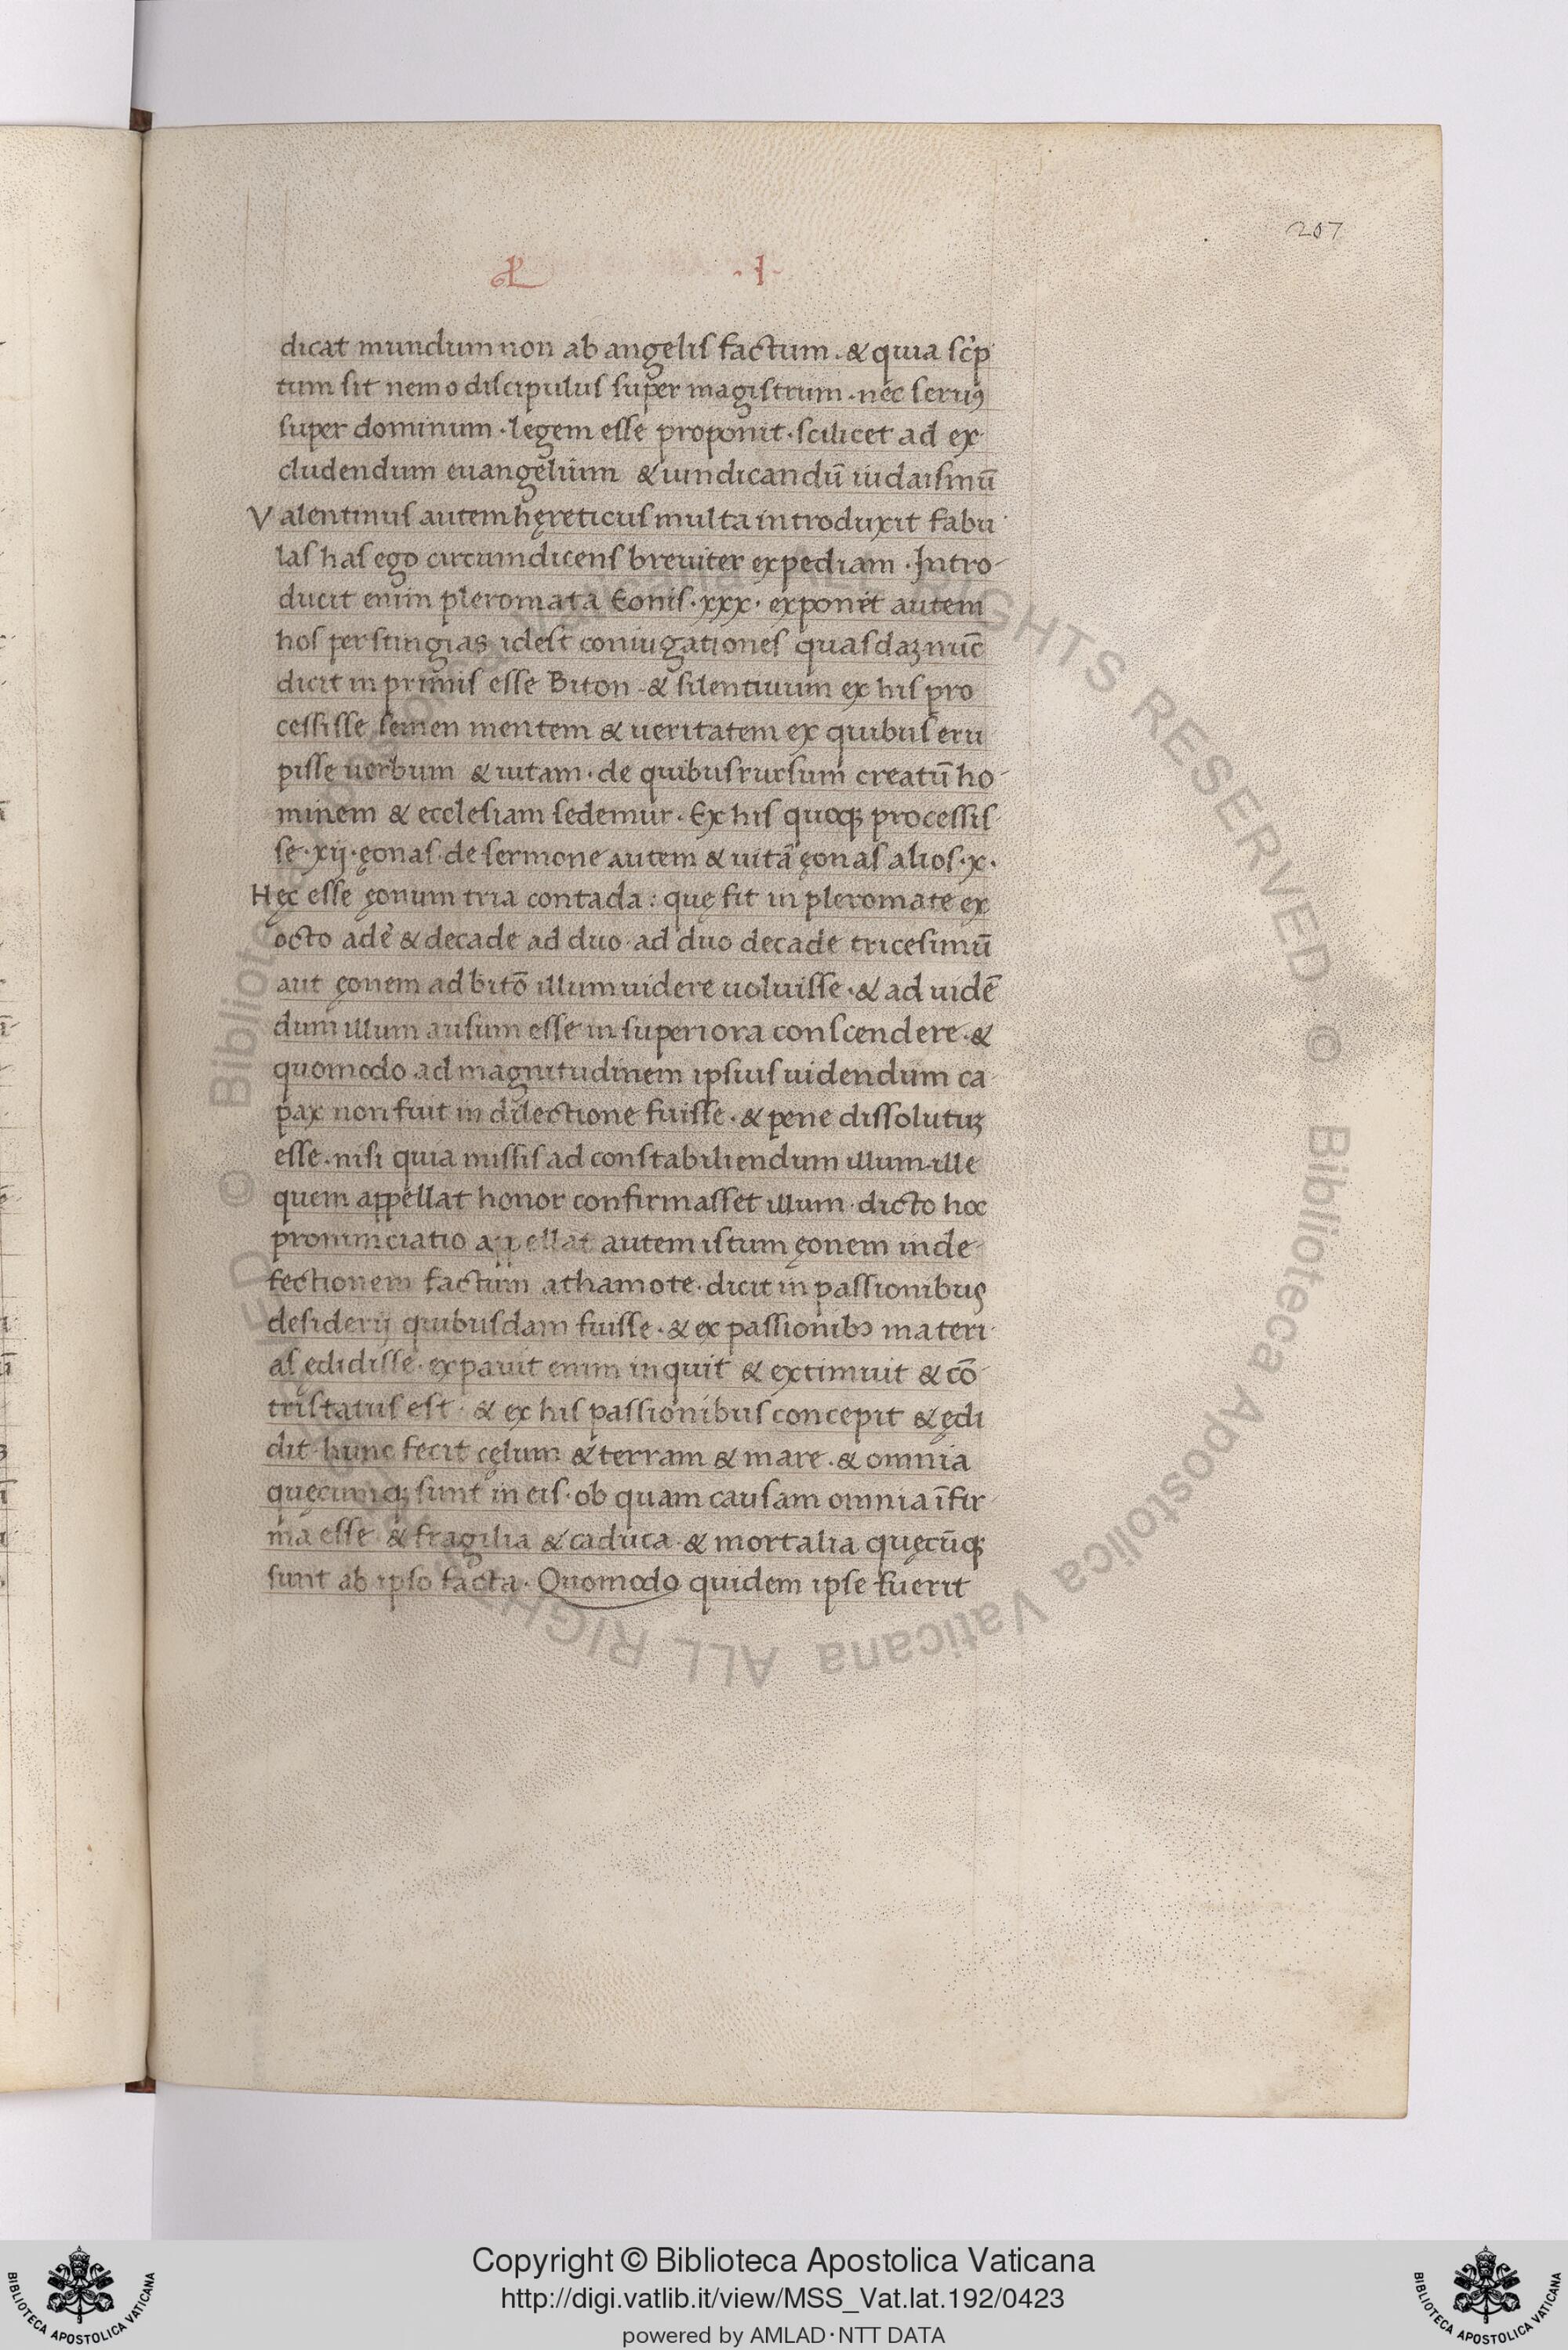 207
·I·
dicat mundum non ab angelis factum. & quia sc̓p
tum sit nemo discipulus super magistrum. nec seruꝰ
super dominum. legem esse proponit. scilicet ad ex
cludendum euangelium & uindicandū iudaismū
Valentinus autem hęreticus multa introduxit fabu
las has ego circumdicens breuiter expediam. Intro-
ducit enim pleromata Eonis. xxx. exponit autem
hos per stingias idest coniugationes quasdaꝫ nūc
dicit in primis esse Biton. & silentiuum ex his pro
cessisse semen mentem & ueritatem ex quibus eru
pisse uerbum & uitam. de quibus rursum creatū ho-
minem & ecclesiam sedemur. Ex his quoqꝫ processis
se. xij. ęonas de sermone autem & uitā ęonas alios. x.
Hęc esse ęonum tria contada: quę fit in pleromate ex
octo ade' & decade ad duo. ad duo decade tricesimū
aut ęonem ad bitō illum uidere uoluisse. & ad uidē
dum illum ausum esse in superiora conscendere. &
quomodo ad magnitudinem ipsius uidendum ca
pax non fuit in dilectione fuisse. & pene dissolutuꝫ
esse. nisi quia missis ad constabiliendum illum. ille
quem appellat honor confirmasset illum. dicto hoc
pronunciatio appellat autem istum ęonem in de-
fectionem factum athamote. dicit in passionibus
desiderij quibusdam fuisse. & ex passionibꝫ materi
as ędidisse. expauit enim inquit & extimuit & cō
tristatus est. & ex his passionibus concepit & ędi
dit. hunc fecit cęlum & terram & mare. & omnia
quęcumqꝫ sunt in eis. ob quam causam omnia īfir
ma esse & fragilia & caduca. & mortalia quęcūqꝫ
sunt ab ipso facta. Quomodo quidem ipse fuerit
© Biblioteca Apostolica Vaticana ALL RIGHTS RESERVED
Copyright © Biblioteca Apostolica Vaticana
http://digi.vatlib.it/view/MSS_Vat.lat.192/0423
powered by AMLAD·NTT DATA
BIBLIOTECA APOSTOLICA VATICANA
BIBLIOTECA APOSTOLICA VATICANA